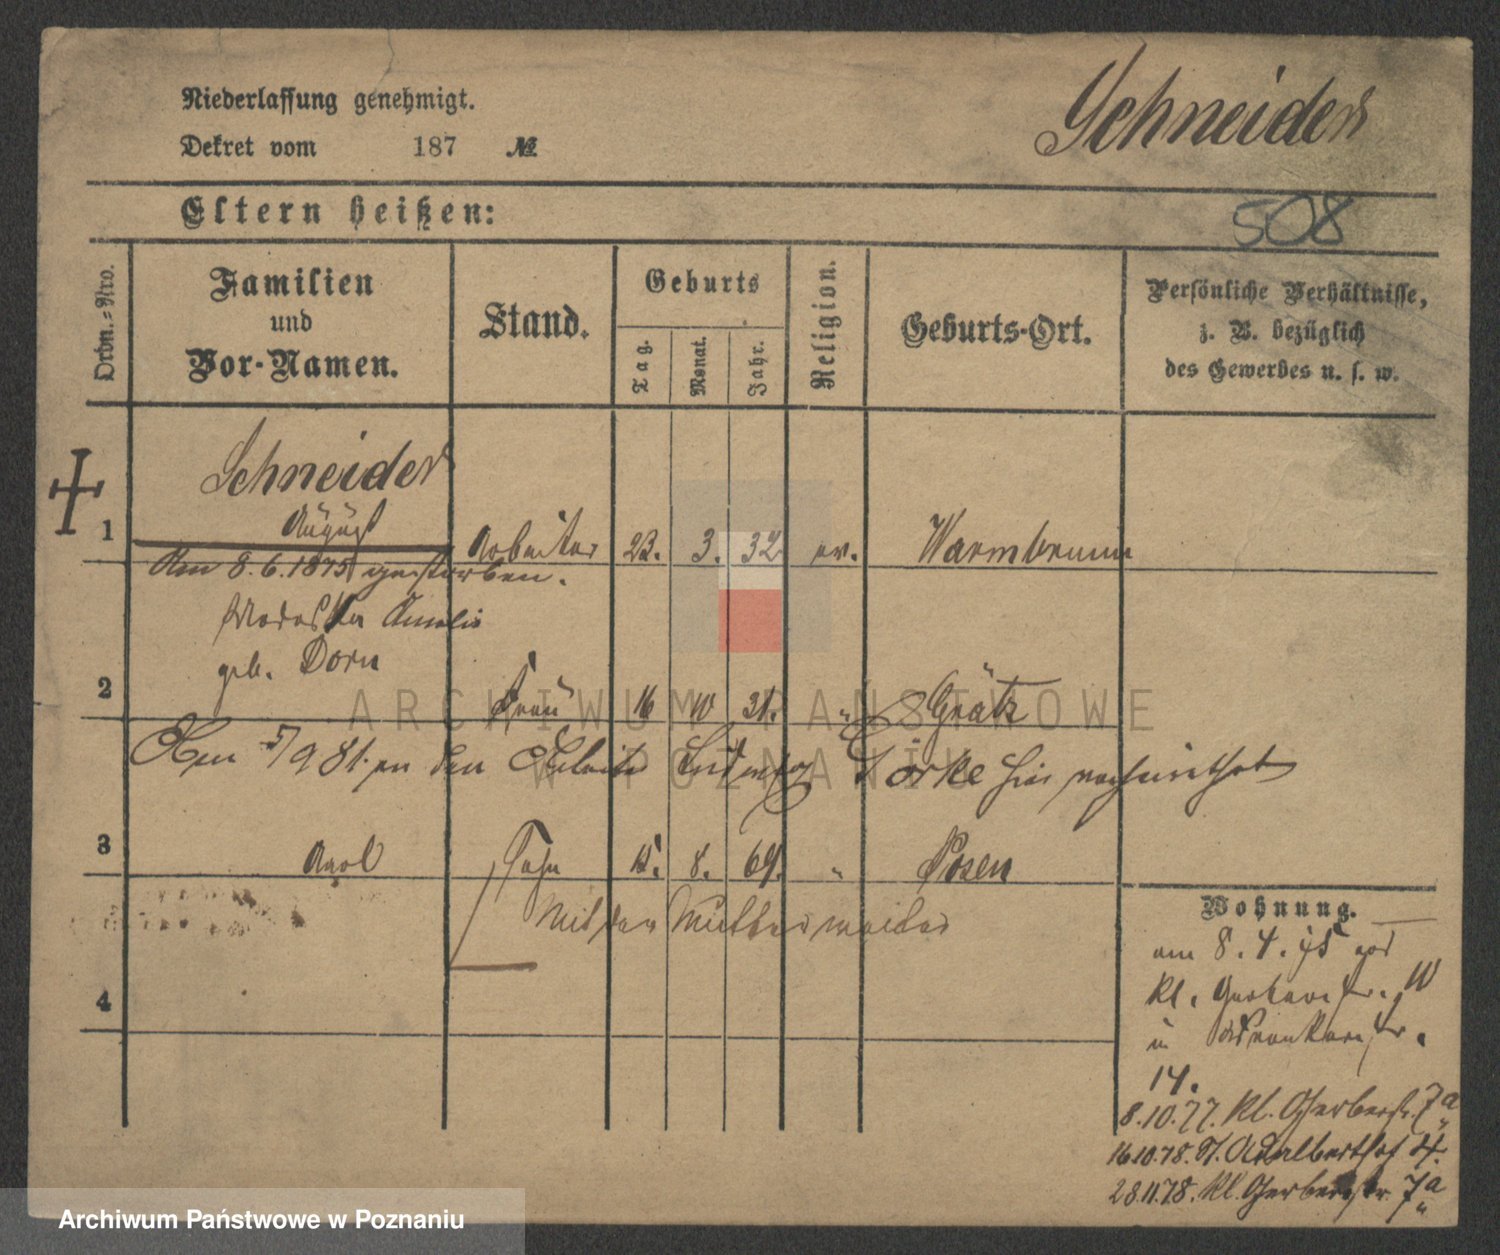 Niederlassung genehmigt.
Schneider
Dekret vom 187 №
Eltern heißen:
508
Ordn.-Nro.
Familien
und
Vor-Namen.
Stand.
Geburts
Tag.
Monat.
Jahr.
Religion.
Geburts-Ort.
Persönliche Verhältnisse,
z. B. bezüglich
des Gewerbes u. s. w.
Schneider
1 August Arbeiter 23. 3. 32 ev. Warmbrunn
Am 8.6.1875 gestorben.
Amalie
geb. Dorn
2 Frau 16 10 31. " Grätz
Am 5/9 81. an den Arbeiter Ludwig hier verheirathet
3 Karl Sohn 15. 8. 64. " Posen
Mit der Mutter weiter
4
Wohnung.
am 8.4.75
kl. Gerberstr. 10
14.
8.10.77. kl. Gerberstr. 7a
16.10.78. St. Adalberthof 4.
28.11.78. kl. Gerberstr. 7a
ARCHIWUM PAŃSTWOWE
W POZNANIU
Archiwum Państwowe w Poznaniu